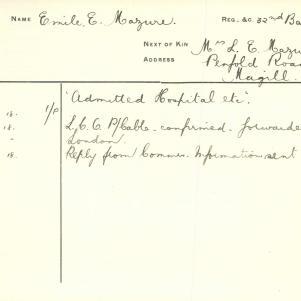 NAME Emile E. Mazure.
REG. &C. 32nd Ba
NEXT OF KIN Mrs L. E. Mazu
ADDRESS Penfold Road
Magill.
18. 1/P "Admitted Hospital etc".
18. L.C.C. P/Cable confirmed forwarde
" London.
18. Reply from Commr. Information sent